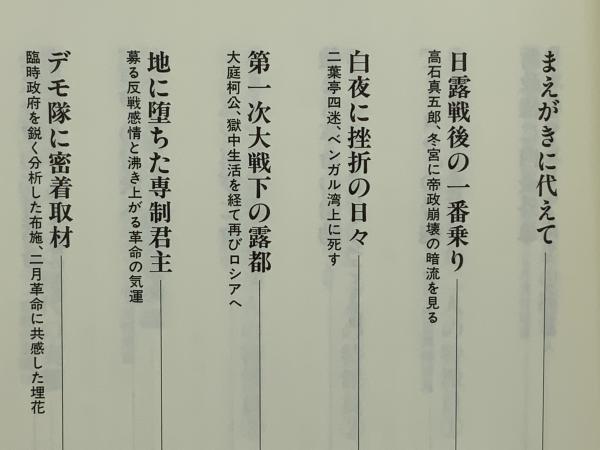 まえがきに代えて
日露戦後の一番乗り
高石真五郎、冬宮に帝政崩壊の暗流を見る
白夜に挫折の日々
二葉亭四迷、ベンガル湾上に死す
第一次大戦下の露都
大庭柯公、獄中生活を経て再びロシアへ
地に堕ちた専制君主
募る反戦感情と沸き上がる革命の気運
デモ隊に密着取材
臨時政府を鋭く分析した布施、二月革命に共感した埋花